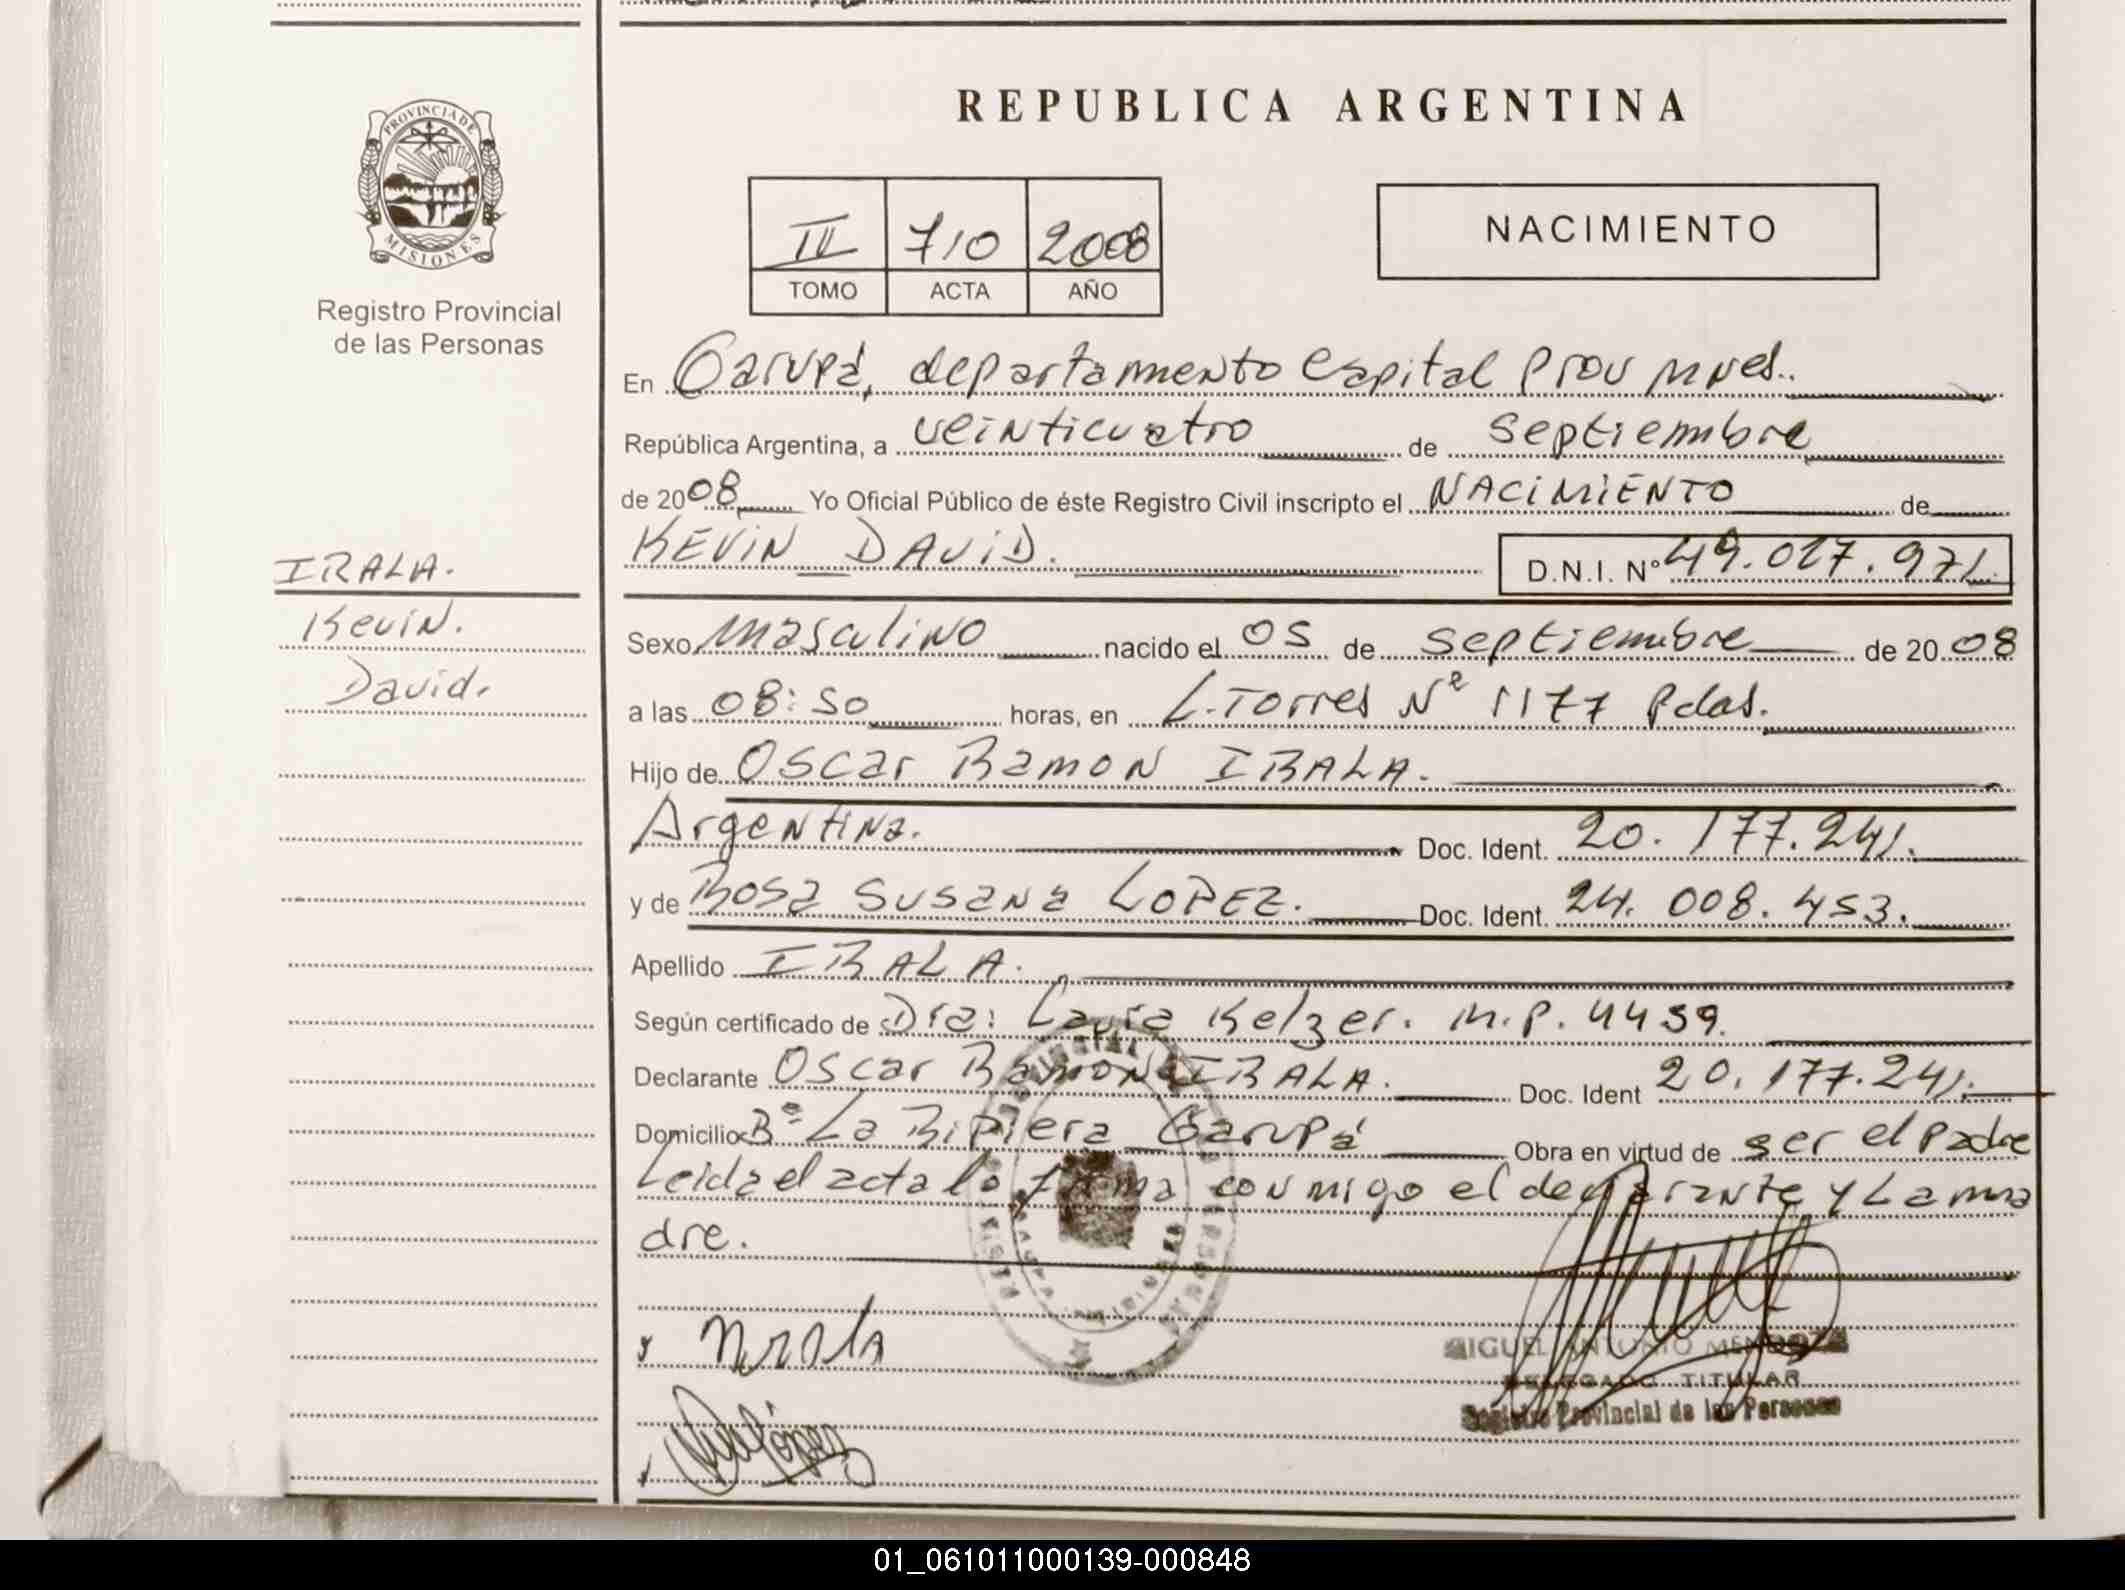 PROVINCIA DE
MISIONES
Registro Provincial
de las Personas
IRALA.
Kevin.
David.
REPUBLICA ARGENTINA
710 2008
TOMO ACTA AÑO
NACIMIENTO
En Garupá, departamento Capital Prov Mnes.
República Argentina, a veinticuatro de septiembre
de 2008 Yo Oficial Público de éste Registro Civil inscripto el NACIMIENTO de
KEVIN DAVID. D.N.I. Nº 49.027.971
Sexo masculino nacido el 05 de septiembre de 2008
a las 08:50 horas, en L. Torres Nº 1177 Pdas.
Hijo de Oscar Ramon IRALA.
Argentina. Doc. Ident. 20.177.241.
y de Rosa Susana LOPEZ. Doc. Ident. 24.008.453.
Apellido IRALA.
Según certificado de Dra: Laura Kelzer. M.P. 4459.
Declarante Oscar Ramon IRALA. Doc. Ident 20.177.241.
Domicilio Bº La Ripiera Garupá Obra en virtud de ser el padre
Leida el acta la firma conmigo el declarante y La ma
dre.
MIGUEL ANTONIO MENDOZA
DELEGADO TITULAR
Registro Provincial de las Personas
01_061011000139-000848